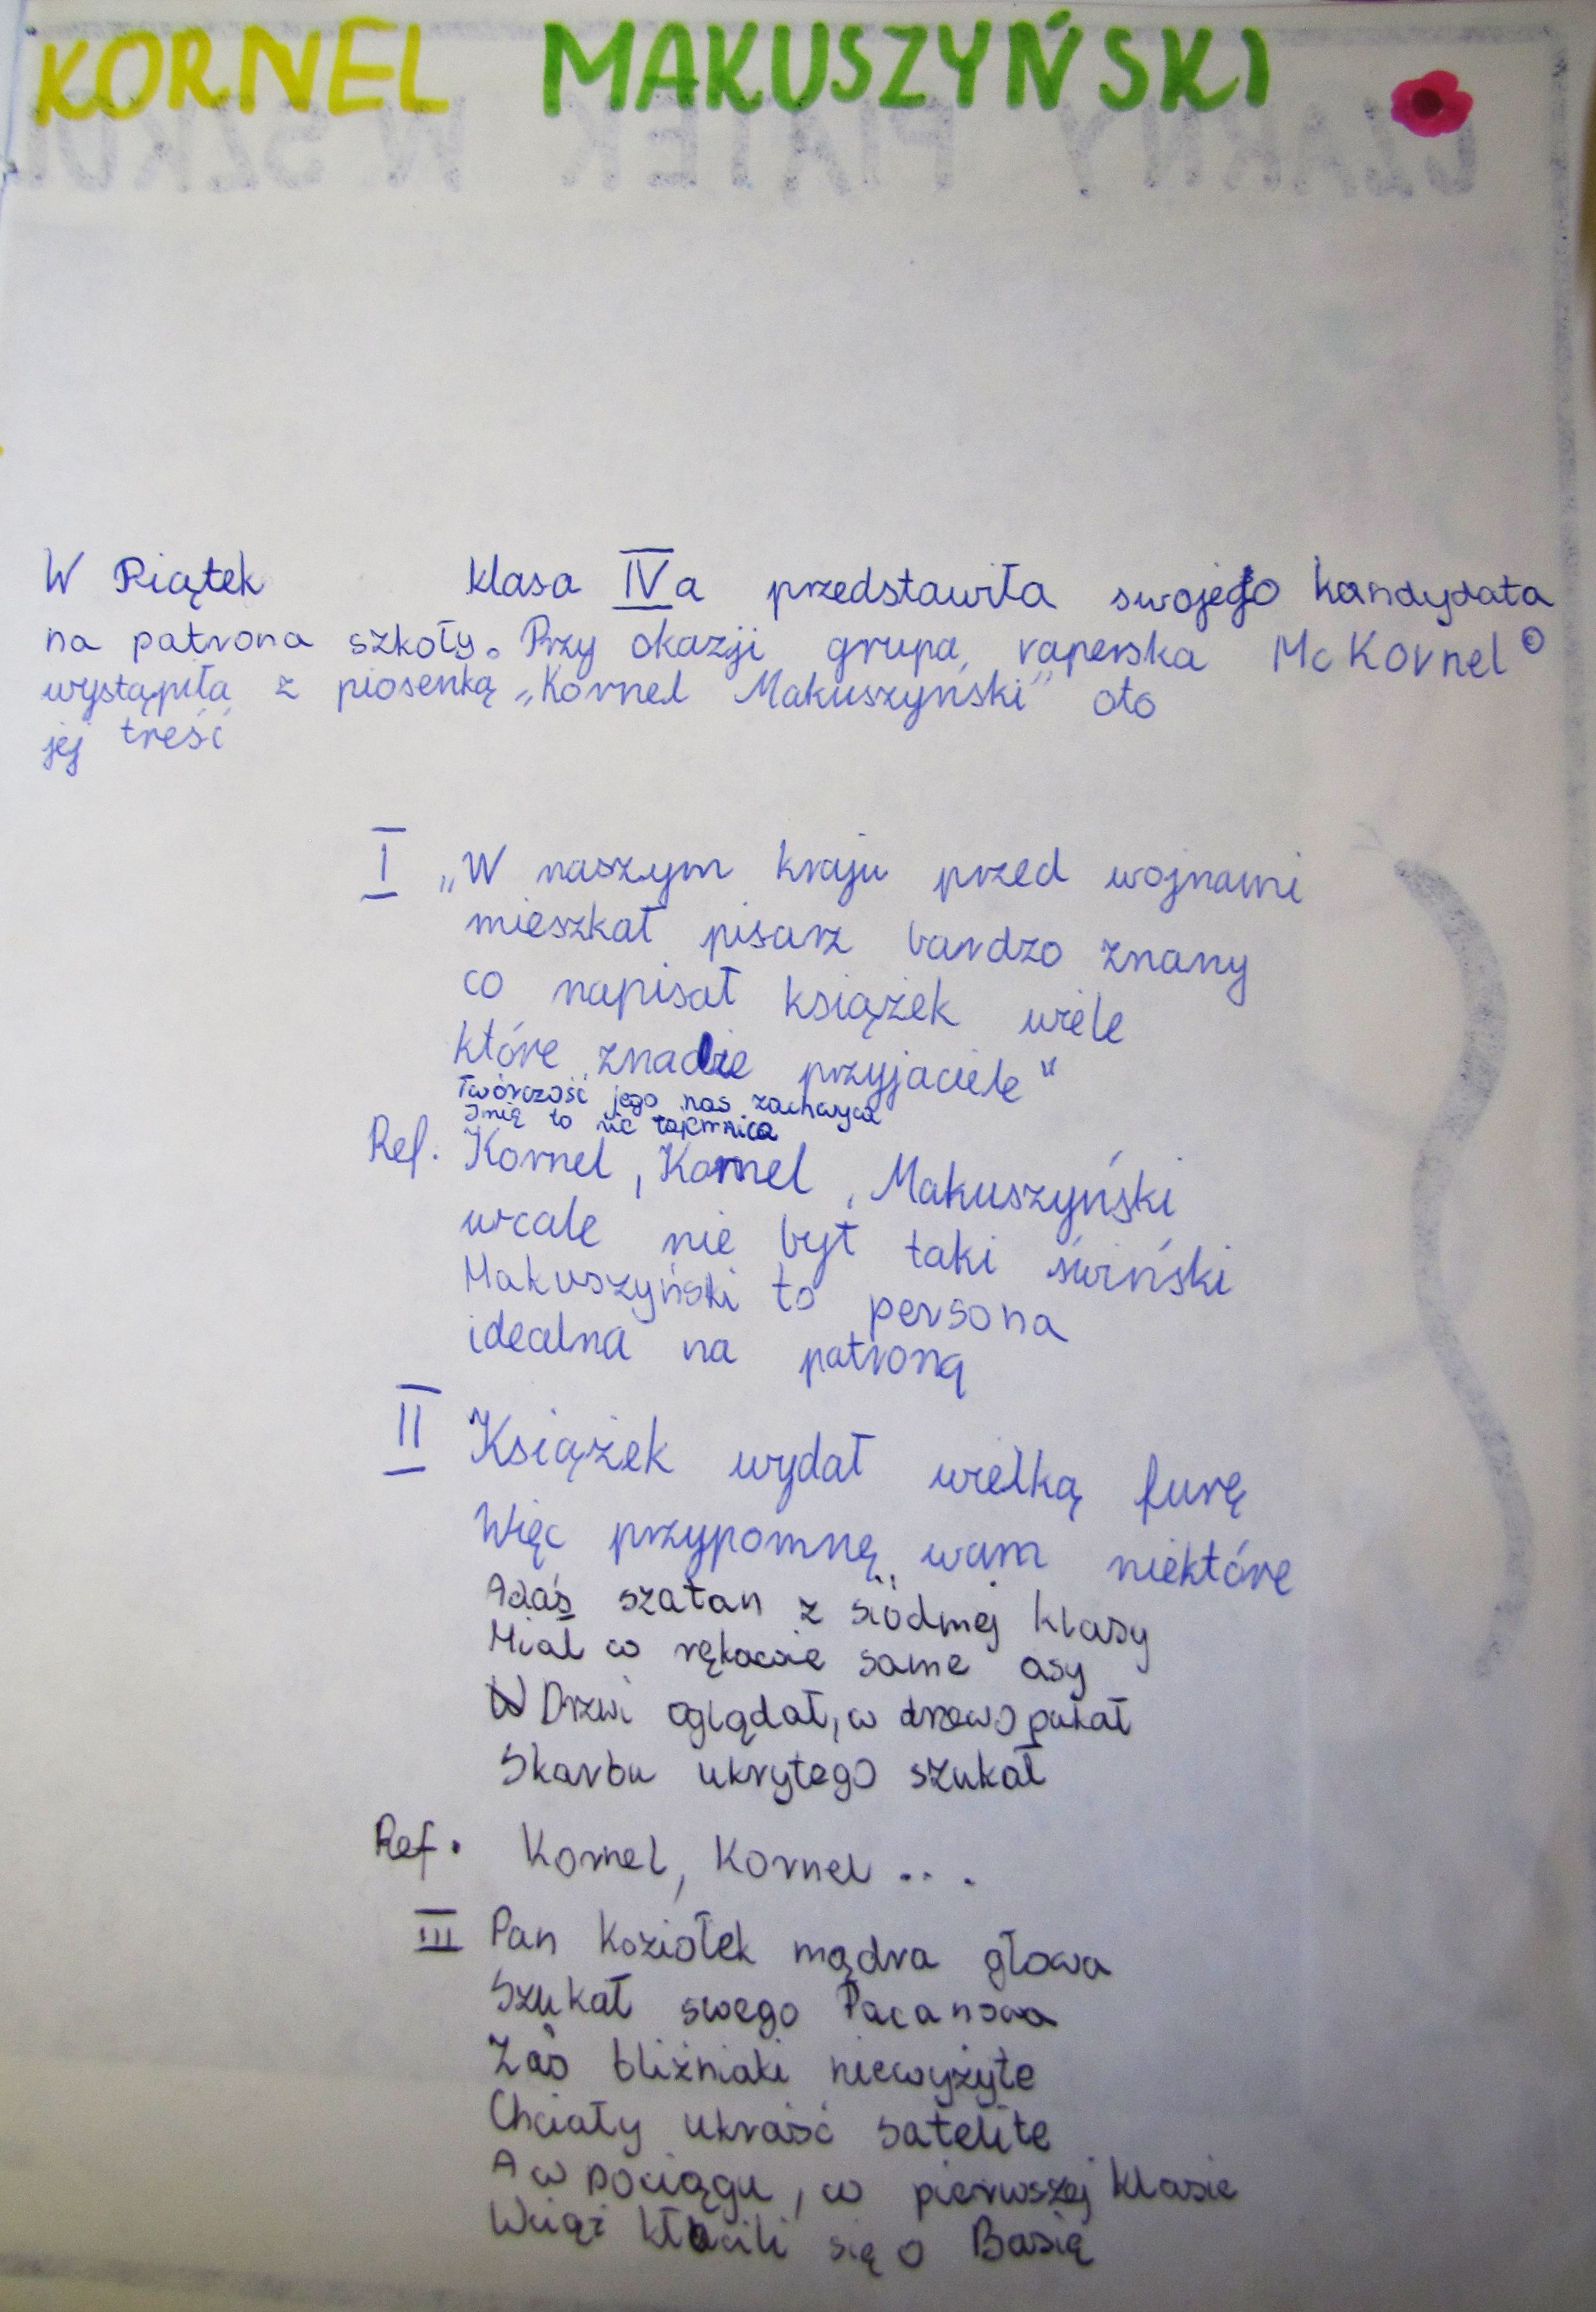 KORNEL MAKUSZYŃSKI
W Piątek klasa IVa przedstawiła swojego kandydata
na patrona szkoły. Przy okazji grupa raperska Mc Kornel
wystąpiła z piosenką „Kornel Makuszyński” oto
jej treść
I „W naszym kraju przed wojnami
mieszkał pisarz bardzo znany
co napisał książek wiele
które znacie przyjaciele"
Twórczość jego nas zachwyca
Imię to nic tajemnica
Ref. Kornel, Kornel, Makuszyński
wcale nie był taki świński
Makuszyński to persona
idealna na patroną
II Książek wydał wielką furę
Więc przypomnę wam niektóre
Adaś szatan z siódmej klasy
Miał w rękawie same asy
Drzwi oglądał, w drzewo pukał
Skarbu ukrytego szukał
Ref. Kornel, Kornel ...
III Pan Koziołek mądra głowa
Szukał swego Pacanowa
Zaś bliźniaki niewyżyte
Chciały ukraść satelite
A w pociągu, w pierwszej klasie
Wciąż kłócili się o Basię